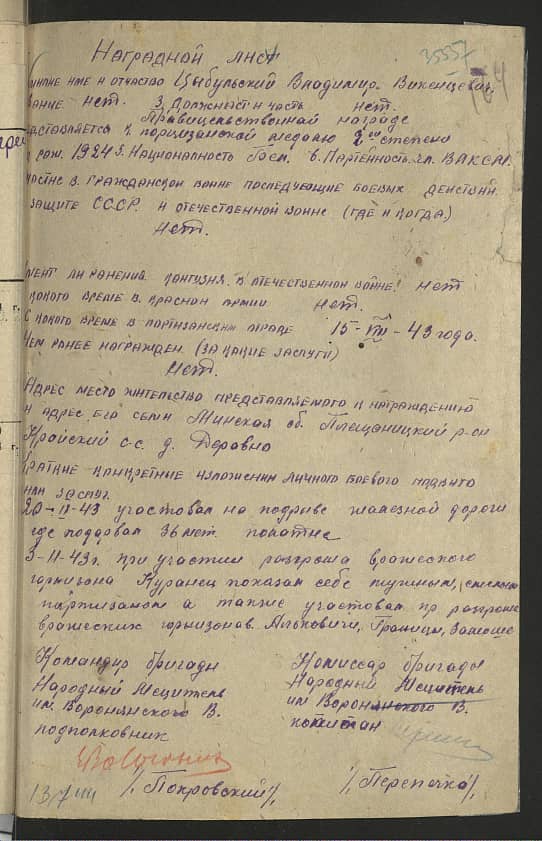 35557
Наградной лист
164
имие име и отчество Цыбульский Владимир Викенцевич
вание нет. 3. Должност и часть нет.
Правицельственной награде
едставляется к порцизанской медалю 2ой степени
1924 г. Национальность Бел. 6. Партенность чл. ВЛКСМ.
частие в гражданской воине последующие боевых действия
защите СССР. и отечественной воине (где и когда)
Нет.
меет ли ранения контузия в отечественной войне? нет
какого време в красной армии нет.
С какого време в портизанским отраде 15-VIII-43 года.
Чем ранее награжден. (за какие заслуги)
Нет.
Адрес место жительство представляемого к награждению
и адрес его семи Минская об. Плещаницкий р-он
Кройский с-с. д. Деравно
Краткие конкретние изложении личного боевого подвиго
или заслуг.
участвовал на подриве железной дороги
где подорвал 36 мет. полотна
3-11-43г. при участии розгрома вражеского
горнизона Куранец показал себе смелым
партизаном а также участвовал пр розгроме
вражеских горнизонав. Альковичи, Границы, Замоше
Командир бригады
Народный Месцитель
им. Воронянского В.
подполковник
/Покровский/,
Комиссар бригады
Народный Месцитель
им Воронянского В.
капитан
/Перепечко/,
137